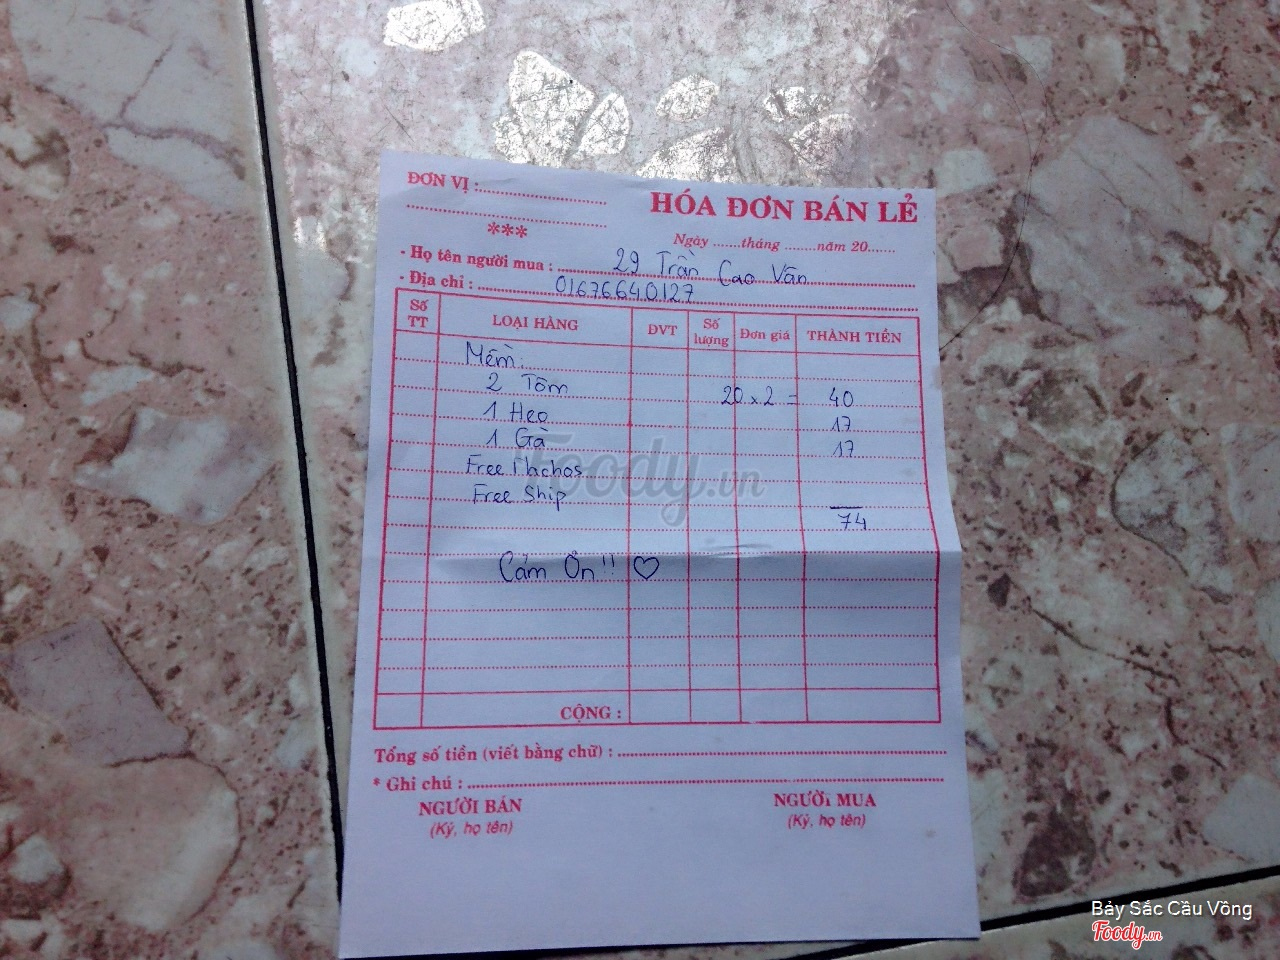 ĐƠN VỊ :
HÓA ĐƠN BÁN LẺ
***
Ngày ....... tháng ........ năm 20.......
- Họ tên người mua : 29 Trần Cao Vân
- Địa chỉ : 01676640127
Số TT LOẠI HÀNG ĐVT Số lượng Đơn giá THÀNH TIỀN
Mềm:
2 Tôm 20 x 2 = 40
1 Heo 17
1 Gà 17
Free Nachos
Free Ship
74
Cám Ơn!! ♡
CỘNG :
Tổng số tiền (viết bằng chữ) :
* Ghi chú :
NGƯỜI BÁN NGƯỜI MUA
(Ký, họ tên) (Ký, họ tên)
Foody.vn
Bảy Sắc Cầu Vồng
Foody.vn